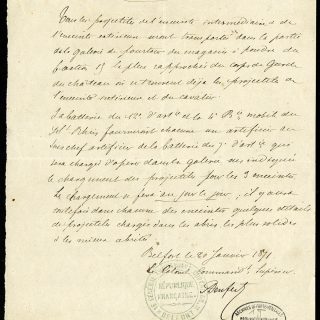 Tous les projectiles de l'enceinte intermédiaire et de
l'enceinte extérieure seront transportés dans la partie
de la galerie de pourtour du magasin à poudre du
bastion 15 la plus rapprochée du corps de garde
du château où se trouvent déjà les projectiles de
l'enceinte intérieure et du cavalier.
La batterie du 12e d'artie et la 4e Bie mobile du
Ht Rhin fourniront chacune un artificier au
maréchal artificier de la batterie du 7e d'artie qui
sera chargé d'opérer dans la galerie
le chargement des projectiles pour les 3 enceintes
Le chargement se fera au jour le jour; il y aura
toutefois dans chacune des enceintes quelques
de projectiles chargés dans les abris les plus solides
et les mieux abrités.
Belfort le 20 Janvier 1871
Le Colonel Commandant Supérieur
Denfert
RÉPUBLIQUE
FRANÇAISE